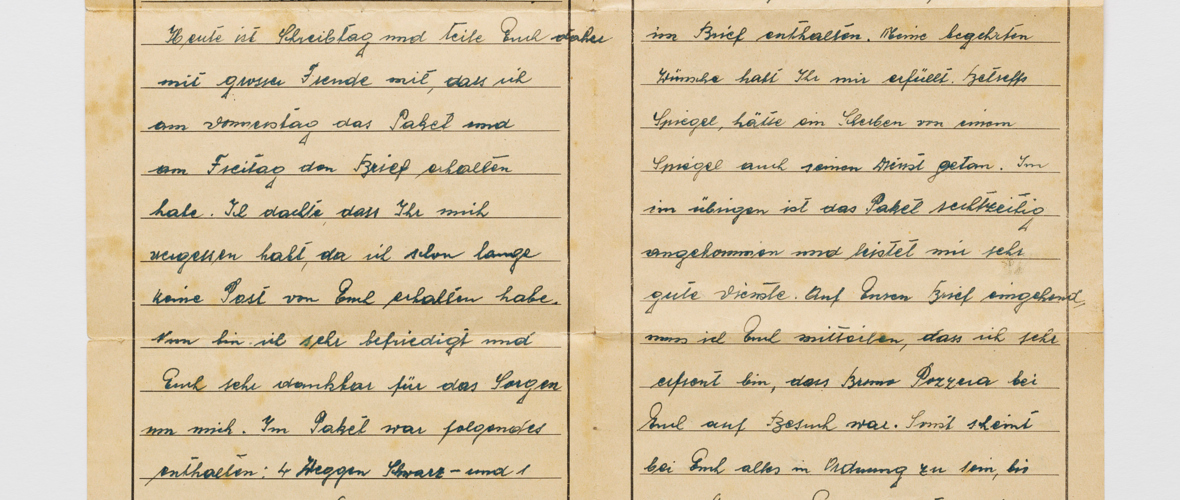 Heute ist Schreibtag und teile Euch daher
mit grosser Freude mit, dass ich
am Donnerstag das Paket und
am Freitag den Brief erhalten
habe. Ich dachte, dass Ihr mich
vergessen habt, da ich schon lange
keine Post von Euch erhalten habe.
Nun bin ich sehr befriedigt und
Euch sehr dankbar für das Sorgen
um mich. Im Paket war folgendes
enthalten: 4 Weggen Schwarz- und 1
im Brief enthalten. Meine begehrten
Wünsche habt Ihr mir erfüllt. Betreffs
Spiegel, hätte ein Scherben von einem
Spiegel auch seinen Dienst getan. Im
im übrigen ist das Paket rechtzeitig
angekommen und leistet mir sehr
gute Dienste. Auf Euren Brief eingehend,
muss ich Euch mitteilen, dass ich sehr
erfreut bin, dass Bruno Pozzera bei
Euch auf Besuch war. Sonst scheint
bei Euch alles in Ordnung zu sein, bis